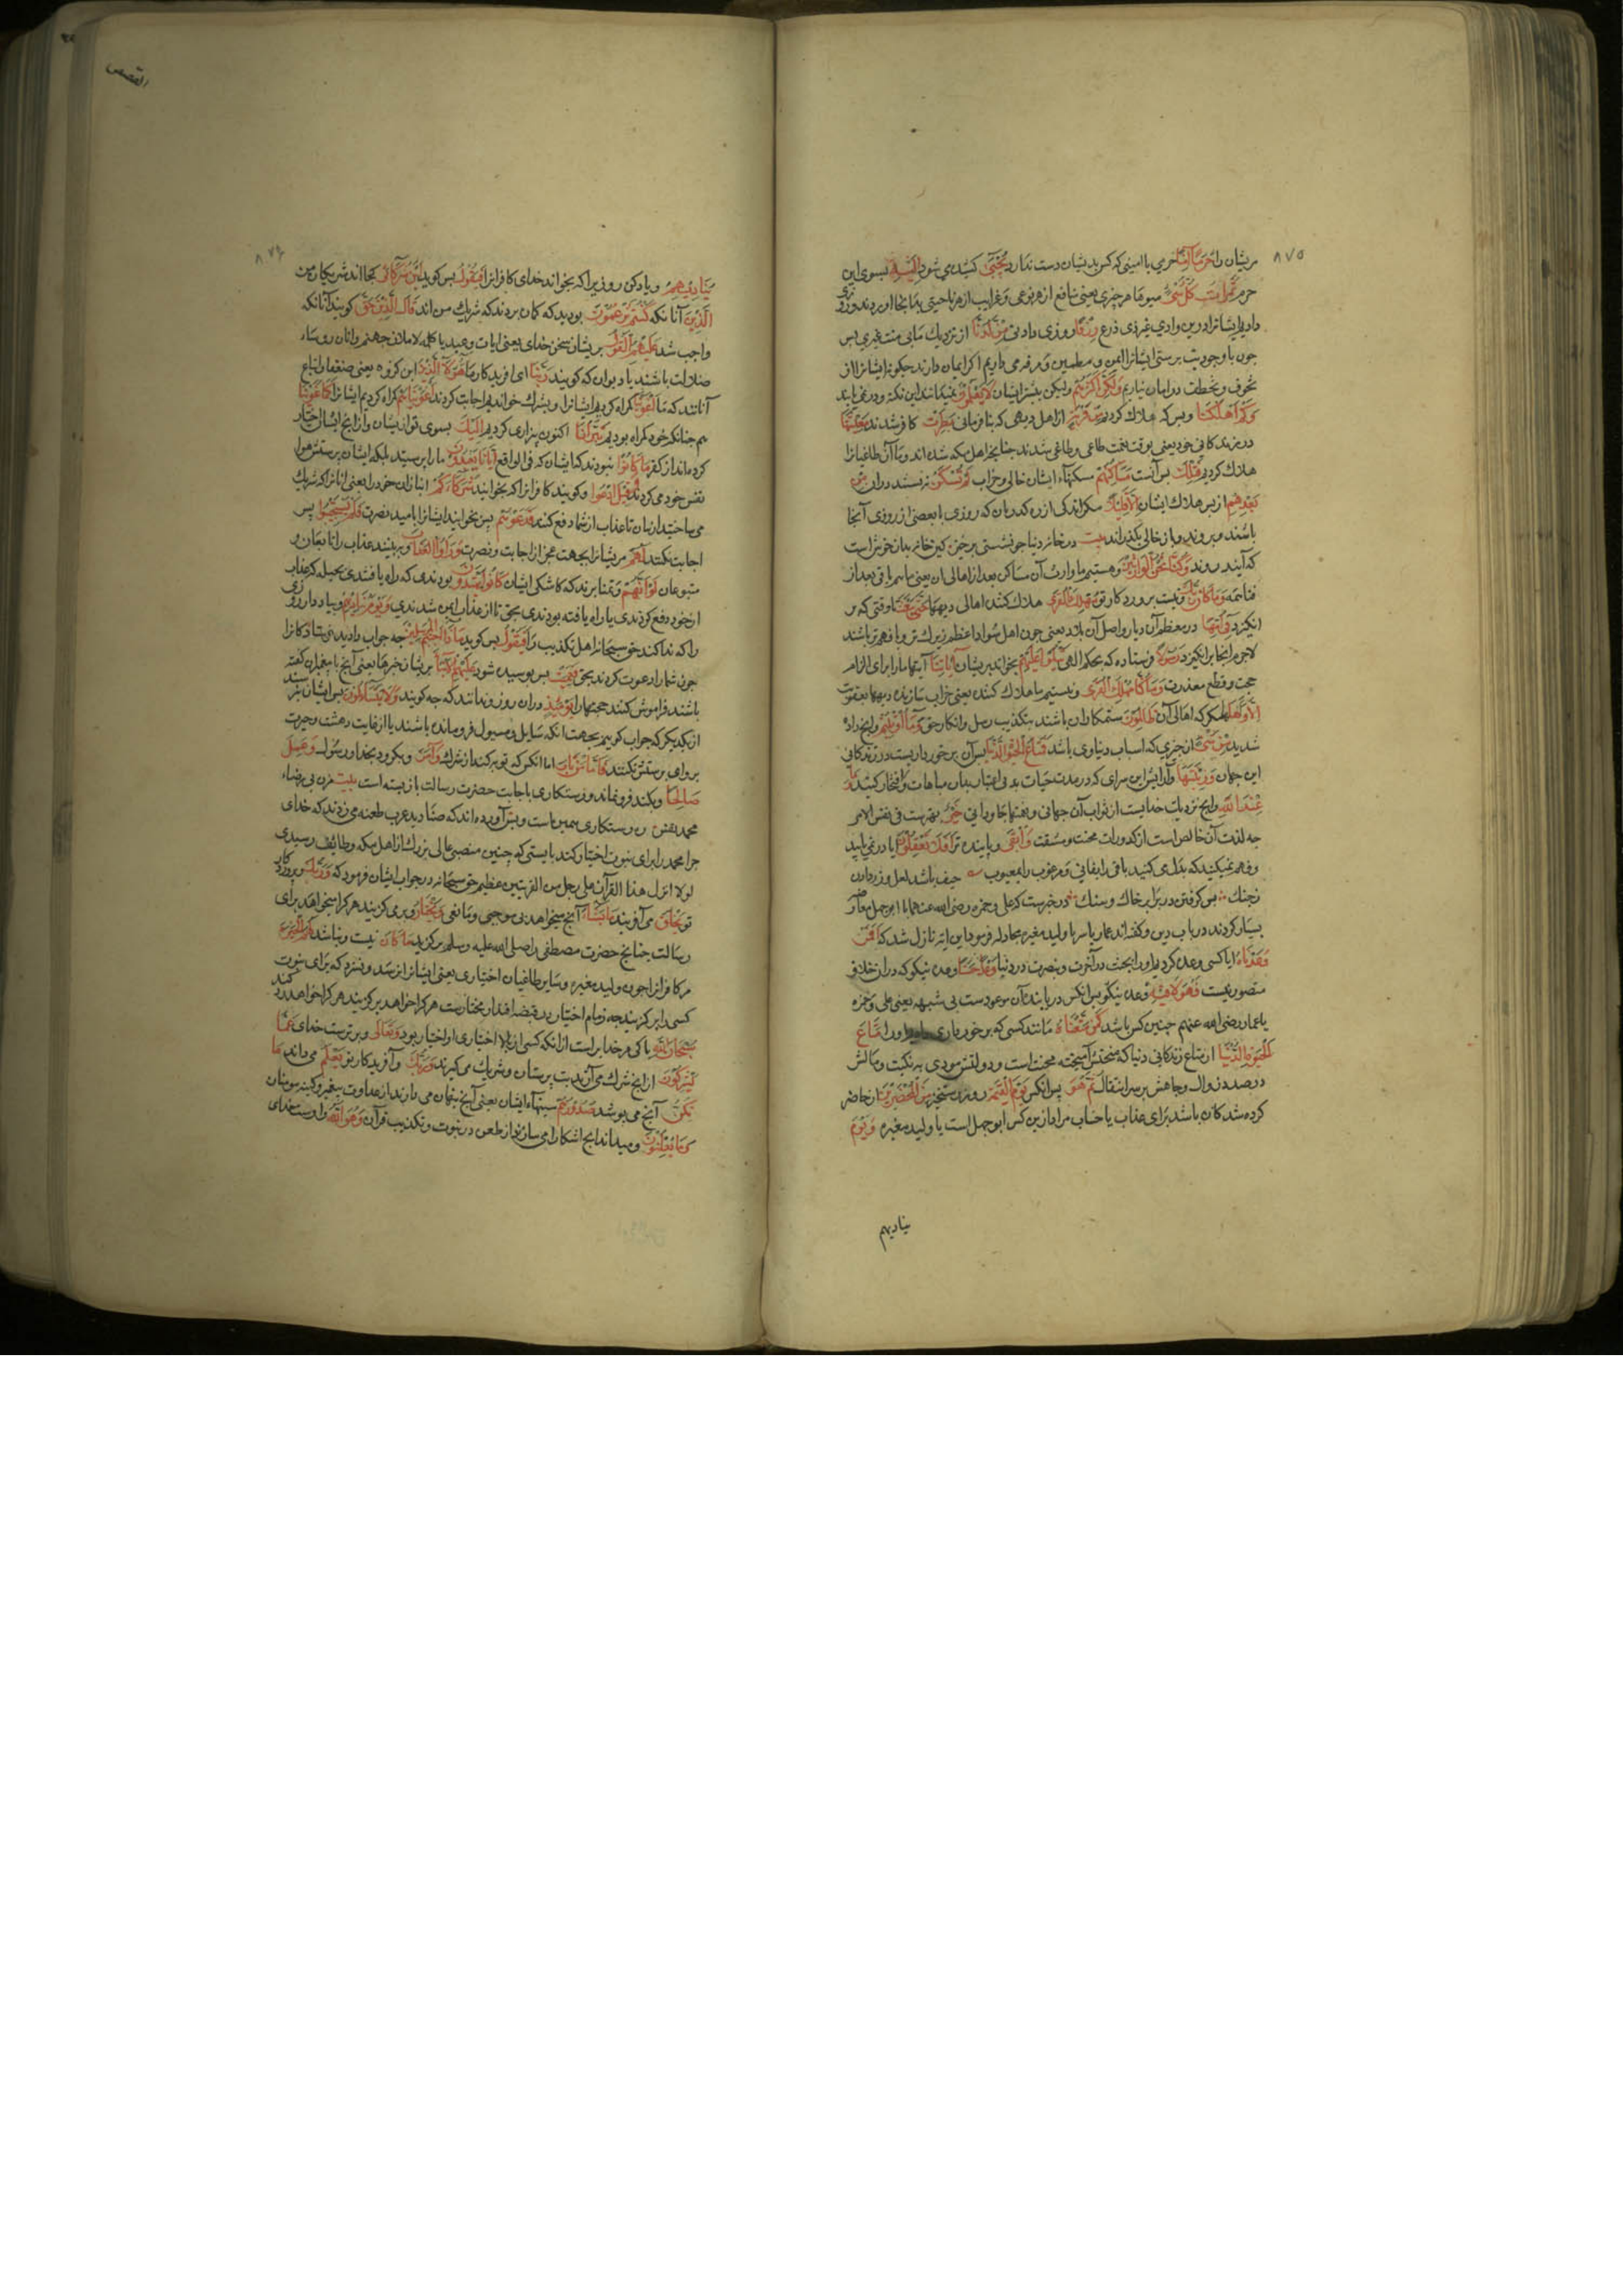 ۸۷۵
مریشان را حَرَمًا آمِنًا حرمی با ایمنی که کس بدیشان دست ندارد یُجْبَی کشیده می شود اِلَیْهِ بسوی این
حرم ثَمَرَاتُ کُلِّ شَیْءٍ میوها هر چیزی یعنی منافع از هر نوعی و غرایب از هر ناحیتی بدانجا اورند و روزی
دادیم ایشانرا درین وادی غیر ذی ذرع رِزْقًا روزی دادنی مِنْ لَدُنَّا از نزدیک ما بی منت غیری پس
چون با وجود بت پرستی ایشانرا ایمن و مطمین و مرفه می داریم اکر ایمان دارند چکونه ایشانرا از
تخوف و تخطف در امان نیاریم وَلَکِنَّ اَکْثَرَهُمْ ولیکن بیشتر ایشان لَا یَعْلَمُونَ نمیدانند این نکته و در نمی یابند
وَکَمْ اَهْلَکْنَا و بس که هلاک کردیم مِنْ قَرْیَةٍ از اهل دیهی که بنافرمانی بَطِرَتْ کافر شدند مَعِیشَتَهَا
در زندکانی خود یعنی بوقت نعمت طاغی و طاغی شدند چنانچه اهل مکه شده اند و ما آن طاغیانرا
هلاک کردیم فَتِلْکَ پس آنست مَسَاکِنُهُمْ مسکنهاء ایشان خالی و خراب لَمْ تُسْکَنْ نه نشسته دران مِنْ
بَعْدِهِمْ از پس هلاک ایشان اِلَّا قَلِیلًا مکر اندکی از ره کذریان که روزی یا بعضی از روزی آنجا
باشند و بروند و باز خالی بکذارند بیت در خانه دنیا چو نشستی برخیز کین خانه بدان خوش است
که آیند و روند وَکُنَّا نَحْنُ الْوَارِثِینَ و هستیم ما وارث آن مساکن بعد از اهالی ان یعنی ماییم باقی بعد از
فناء همه وَمَا کَانَ رَبُّکَ و نیست پروردکار تو مُهْلِکَ الْقُرَی هلاک کننده اهالی دیهها حَتَّی یَبْعَثَ تا وقتی که بر
انکیزد فِی اُمِّهَا در معظم آن دیار و اصل آن بلاد یعنی چون اهل سواد اعظم زیرک تر و با فهم تر باشند
لاجرم انجا برانکیزد رَسُولًا فرستاده که بحکم الهی یَتْلُو عَلَیْهِمْ بخواند بریشان آیَاتِنَا آیتها ما را برای الزام
حجت و قطع معذرت وَمَا کُنَّا مُهْلِکِی الْقُرَی و نیستیم ما هلاک کننده یعنی خراب سازنده دیهها بعقوبت
اِلَّا وَاَهْلُهَا مکر که اهالی آن ظَالِمُونَ ستمکاران باشند بتکذیب رسل و انکار حق وَمَا اُوتِیتُمْ و انچه داده
شدید مِنْ شَیْءٍ از چیزی که اسباب دنیاوی باشد فَمَتَاعُ الْحَیَوةِ الدُّنْیَا پس آن برخورداریست در زندکانی
این جهان وَزِینَتُهَا و آرایش این سرای که در مدت حیات بدان مباهات و افتخار کنید وَمَا
عِنْدَ اللهِ و انچه نزدیک خدایست از ثواب آن جهانی و نعمتها جاودانی خَیْرٌ بهترست فی نفس الامر
چه لذت آن خالص است از کدورات محنت و مشقت وَاَبْقَی و پاینده تر اَفَلَا تَعْقِلُونَ ایا در نمی یابید
و فهم نمیکنید که بدل می کنید باقی را بفانی و مرغوب را بمعیوب حیف باشد لعل و زر دادن
ز چنک پس کرفتن در برابر خاک و سنک در خبرست که علی و حمزه رضی الله عنهما با ابوجهل معارضه
بسیار کردند در باب دین و کفته اند عمار یاسر با ولید مغیره مجادله فرمود این ایه نازل شد که اَفَمَنْ
وَعَدْنَاهُ ایا کسی وعده کردیم او را بجنت در آخرت و نصرت در دنیا وَعْدًا حَسَنًا وعده نیکو که دران خلاف
متصور نیست فَهُوَ لَاقِیهِ وعده نیکو پس انکس دریابنده آن موعودست بی شبهه یعنی علی و حمزه
یا عمار رضی الله عنهم چنین کس باشد کَمَنْ مَتَّعْنَاهُ مانند کسی که برخورداری او را مَتَاعَ
الْحَیَوةِ الدُّنْیَا از متاع زندکانی دنیا که آمیخته محنت است و دولتش مودی به نکبت و مالش
در صدد زوال و جاهش بر سر انتقال ثُمَّ هُوَ پس انکس یَوْمَ الْقِیَمَةِ روز رستخیز مِنَ الْمُحْضَرِینَ از حاضر
کرده شدکان باشد برای عذاب یا حساب مراد ازین کس ابوجهل است یا ولید مغیره وَیَوْمَ
ینادیهم
القصص
۸۷۶
یُنَادِیهِمْ و یاد کن روزیرا که بخواند خدای کافرانرا فَیَقُولُ پس کوید اَیْنَ شُرَکَائِیَ کجا اند شریکان من
الَّذِینَ آنانکه کُنْتُمْ تَزْعُمُونَ بودید که کمان بردند که شریک من اند قَالَ الَّذِینَ حَقَّ کویند آنانکه
واجب شد عَلَیْهِمُ الْقَوْلُ بریشان سخن خدای یعنی ایات وعید یا کلمه لاملان جهنم و انان روساء
ضلالت باشند یا دیوان که کویند رَبَّنَا ای افریدکار ما هَؤُلَاءِ الَّذِینَ این کروه یعنی ضعفا و اتباع
آنانند که ما اَغْوَیْنَا کمراه کردیم ایشانرا و بشرک خواندیم اجابت کردند اَغْوَیْنَاهُمْ کمراه کردیم ایشانرا کَمَا غَوَیْنَا
هم چنانکه خود کمراه بودیم تَبَرَّاْنَا اکنون بیزاری کردیم اِلَیْکَ بسوی تو از یشان و از انچه ایشان اختیار
کرده اند از کفر مَا کَانُوا نبودند ایشان که فی الواقع اِیَّانَا یَعْبُدُونَ ما را پرستیدند بلکه ایشان پرستش هوا
نفس خود می کردند وَقِیلَ ادْعُوا و کویند کافرانرا که بخوانید شُرَکَاءَکُمْ انبازان خود را یعنی انانرا که شریک
می ساختید از بتان تا عذاب از شما دفع کنند فَدَعَوْهُمْ پس بخوانید ایشانرا بامید نصرت فَلَمْ یَسْتَجِیبُوا پس
اجابت نکنند لَهُمْ مریشانرا بجهت عجز از اجابت و نصرت وَرَاَوُا الْعَذَابَ و ببینند عذاب را تابعان و
متبوعان لَوْ اَنَّهُمْ و تمنا برند که کاشکی ایشان کَانُوا یَهْتَدُونَ بودندی که راه یافتندی بحیله که عذاب
از خود دفع کردندی یا راه یافته بودندی بحق تا از عذاب ایمن شدندی وَیَوْمَ یُنَادِیهِمْ و بیاد دار روزی
را که ندا کند حق سبحانه اهل تکذیب را فَیَقُولُ پس کوید مَاذَا اَجَبْتُمُ الْمُرْسَلِینَ چه جواب دادید فرستادکانرا
چون شما را دعوت کردند بحق فَعَمِیَتْ پس پوسیده شود عَلَیْهِمُ الْاَنْبَاءُ بریشان خبرها یعنی آنچه با پیغمبران کفته
باشند فراموش کنند حجتها را یَوْمَئِذٍ دران روز و ندانند که چه کویند فَهُمْ لَا یَتَسَاءَلُونَ پس ایشان نپرسند
از یکدیکر که جواب کوییم بجهت انکه سایل و مسیول فرومانده باشند یا از غایت دهشت و حیرت
پروای پرسش نکنند فَاَمَّا مَنْ تَابَ اما انکس که توبه کند از شرک وَآمَنَ و بکرود بخدا و رسول وَعَمِلَ
صَالِحًا و بکند فرونماند و رستکاری باجابت حضرت رسالت باز بسته است بیت مزن بی رضاء
محمد نفس ره رستکاری همین است و بس آورده اند که صنادید عرب طعنه می زدند که خدای
چرا محمد را برای نبوت اختیار کند بایستی که چنین منصبی عالی بزرک از اهل مکه و طائف رسیدی
لولا انزل هذا القرآن علی رجل من القریتین عظیم حق سبحانه در جواب ایشان فرمود که وَرَبُّکَ پروردکار
تو یَخْلُقُ می آفریند مَا یَشَاءُ آنچه میخواهد بی موجبی و مانعی وَیَخْتَارُ و برمی کزیند هر کرا میخواهد برای
رسالت چنانچه حضرت مصطفی را صلی الله علیه وسلم برکزید مَا کَانَ نیست و نباشد لَهُمُ الْخِیَرَةُ
مر کافرانرا چون ولید مغیره و سایر طاغیان اختیاری یعنی ایشانرا نرسد و نسزد که برای نبوت
کسی را برکزیند چه زمام اختیار در قبضه اقتدار مختاریست هر کرا خواهد برکزیند هر کرا خواهد رد کند
سُبْحَانَ اللهِ پاکی مر خدایراست از انکه کسی را اختیاری او اختیار بود وَتَعَالَی و برترست خدای عَمَّا
یُشْرِکُونَ از انچه شرک می آرند بت پرستان و شریک می کیرند وَرَبُّکَ و آفریدکار تو یَعْلَمُ می داند مَا
تُکِنُّ آنچه می پوشد صُدُورُهُمْ سینهاء ایشان یعنی آنچه پنهان می دارند از عداوت پیغمبر و کینه مومنان
وَمَا یُعْلِنُونَ و میداند انچه اشکارا می سازند از طعن در نبوت و تکذیب قرآن وَهُوَ اللهُ و اوست خدای